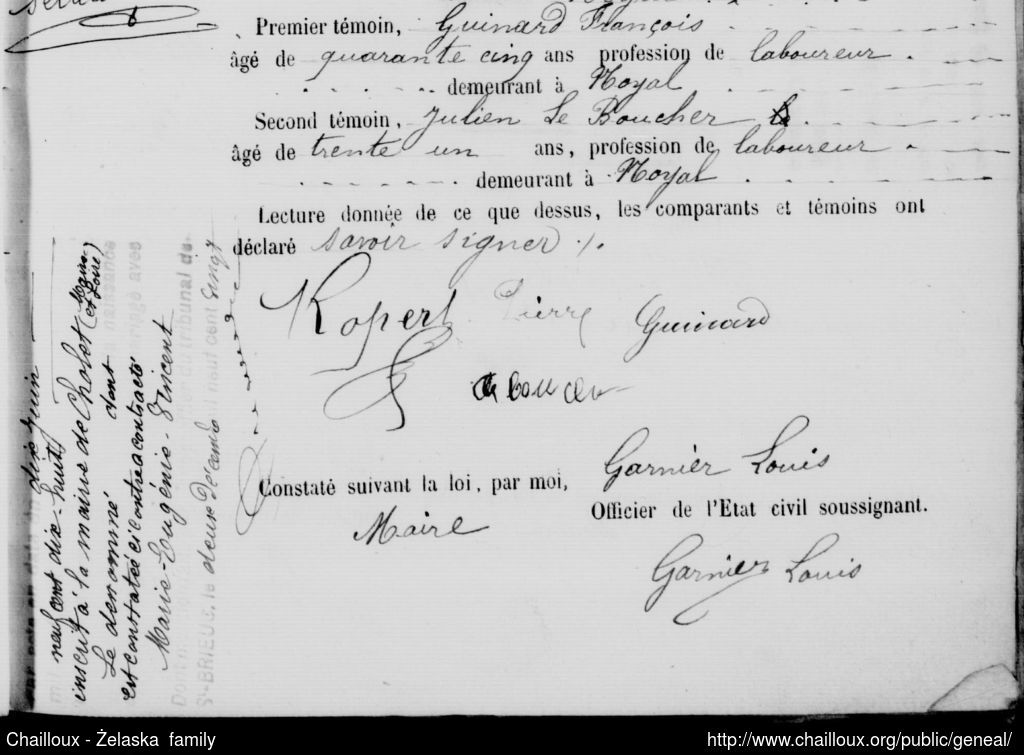 Premier témoin, Guinard François
âgé de quarante cinq ans profession de laboureur.
demeurant à Noyal
Second témoin, Julien Le Boucher
âgé de trente un ans, profession de laboureur
demeurant à Noyal
Lecture donnée de ce que dessus, les comparants et témoins ont
déclaré savoir signer ./.
Ropert Pierre Guinard
Garnier Louis
Constaté suivant la loi, par moi,
Maire
Officier de l'Etat civil soussignant.
Garnier Louis
dix Juin
neuf cent dix-huit
inscrit à la mairie de Cholet (Maine
et Loire)
Le dénommé dont
est constatée ci contre a contracté
Marie-Eugénie Vincent
St-BRIEUC, le deux Décembre mil neuf cent vingt
Chailloux - Żelaska family
http://www.chailloux.org/public/geneal/